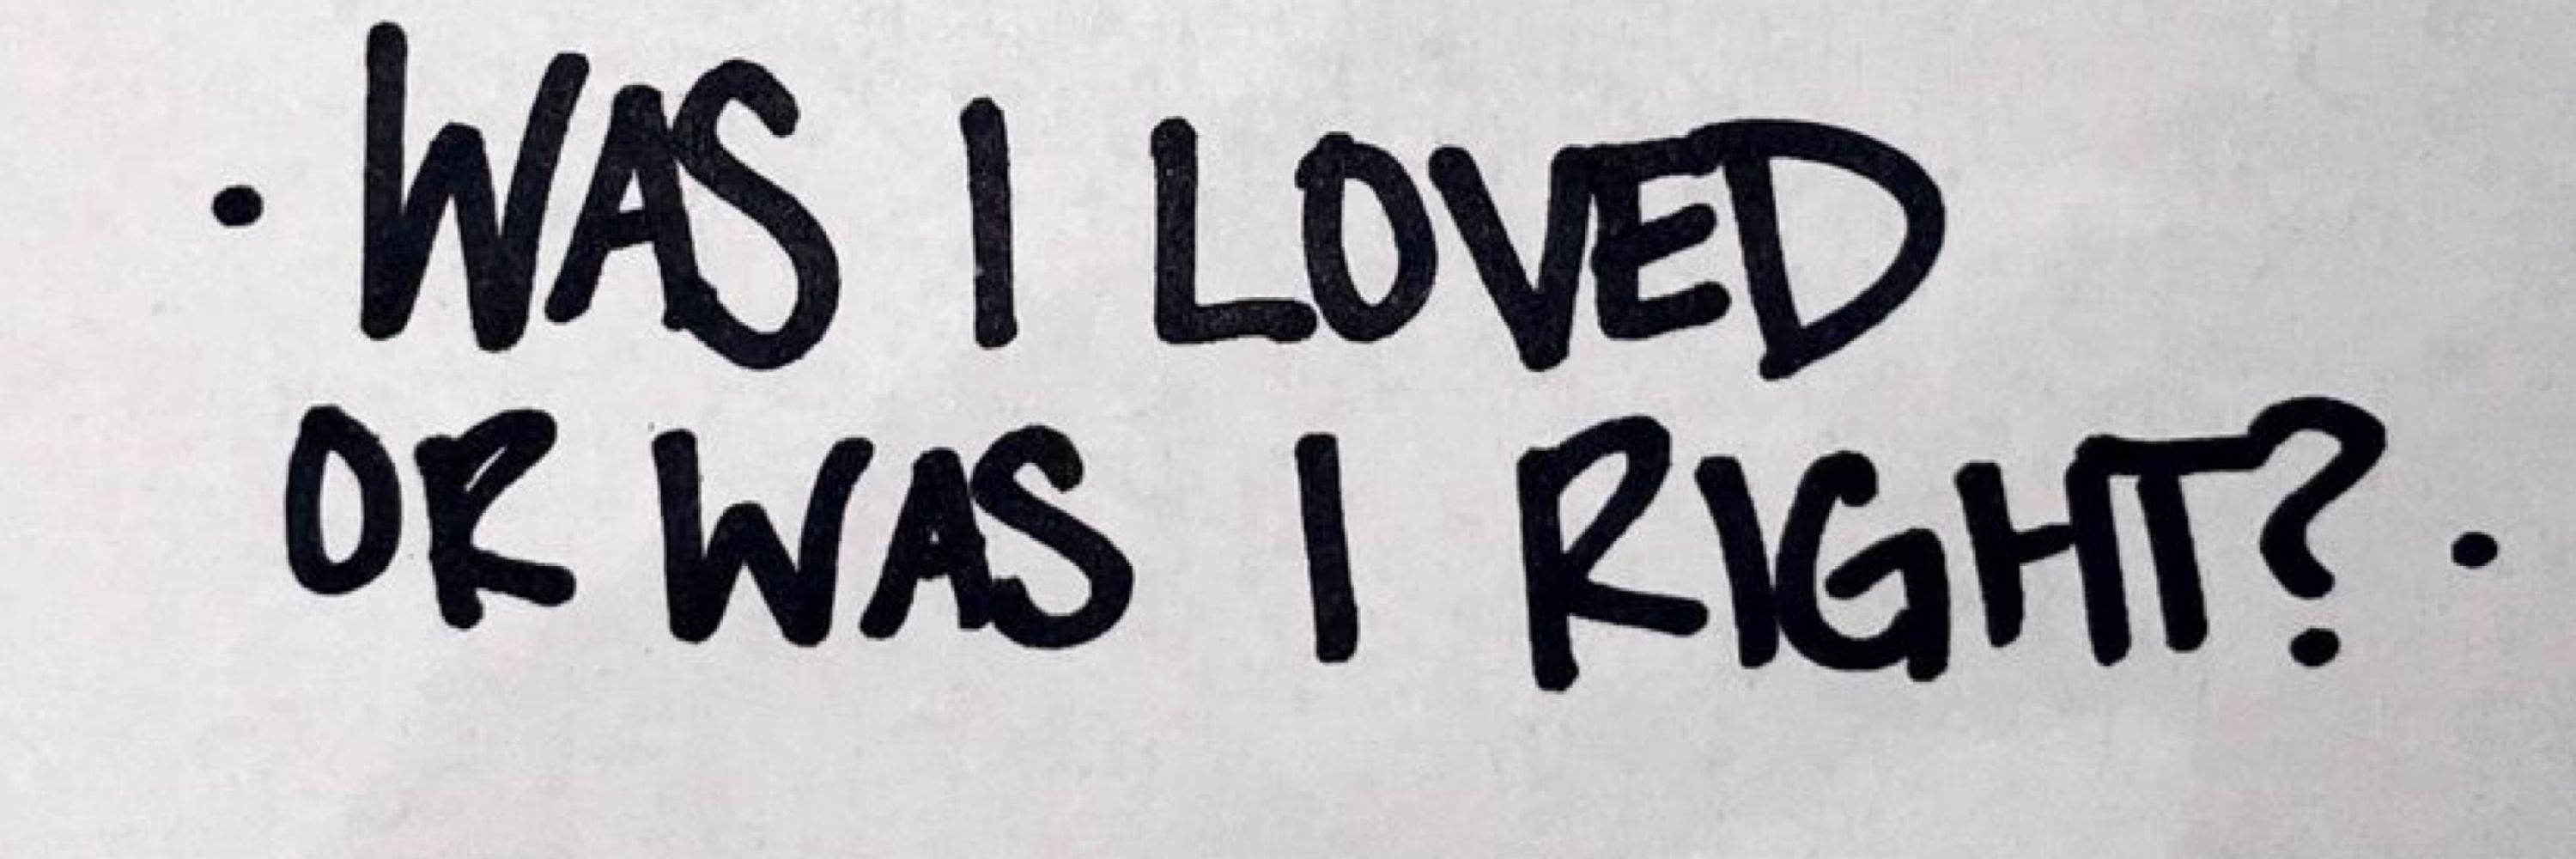 · WAS I LOVED
OR WAS I RIGHT? ·